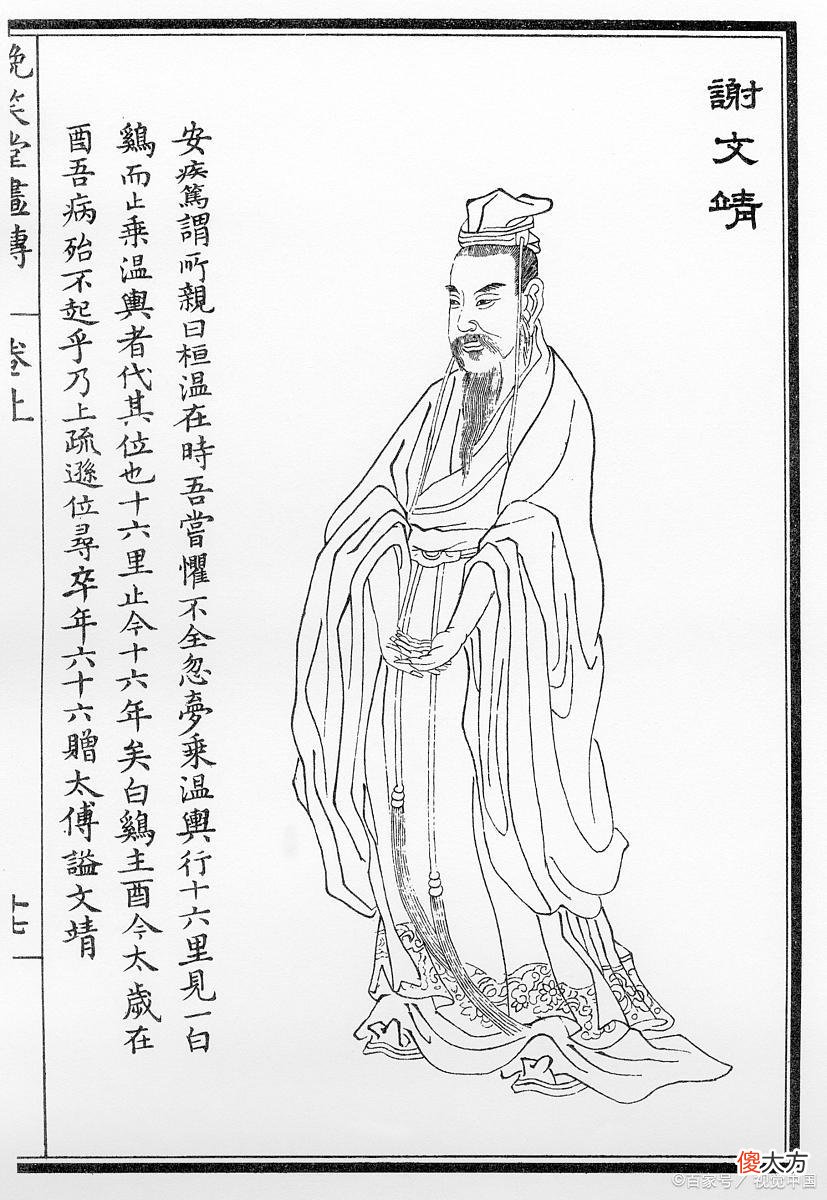 謝文靖
安疾篤謂所親曰桓温在時吾嘗懼不全忽夢乘温輿行十六里見一白
鷄而止乘温輿者代其位也十六里止今十六年矣白鷄主酉今太歲在
酉吾病殆不起乎乃上疏遜位尋卒年六十六贈太傅謚文靖
晚笑堂畫傳
卷上
十七
傻大方
©百家号／视觉中国